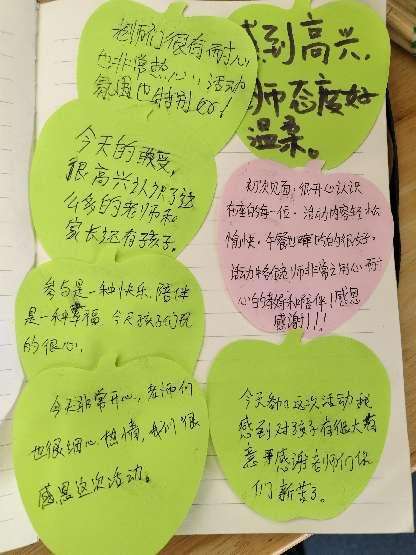 老师们很有耐心
也非常热心，活动
氛围也特别好！
感到高兴，
师态度好
温柔。
今天的
很高兴认识了这
么多的老师和
家长还有孩子。
初次见面，很开心认识
在座的每一位，活动内容轻松
愉快，午餐也
活动中各位老师非常之用心
心的教和陪伴！感恩
感谢！！！
参与是一种快乐，陪伴
是一种幸福，今天孩子们玩
的很开心。
今天非常开心，老师们
也很细心 热情，我们很
感恩这次活动。
今天参加这次活动我
感到对孩子有很大教
意率感谢老师们你
们 辛苦了。